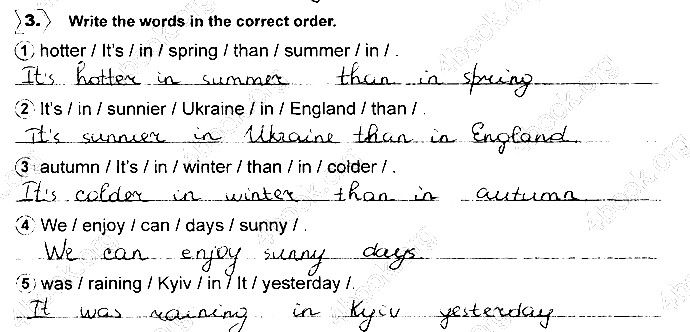 3. Write the words in the correct order.
1 hotter / It's / in / spring / than / summer / in / .
It's hotter in summer than in spring
2 It's / in / sunnier / Ukraine / in / England / than / .
It's sunnier in Ukraine than in England.
3 autumn / It's / in / winter / than / in / colder / .
It's colder in winter than in autumn
4 We / enjoy / can / days / sunny / .
We can enjoy sunny days
5 was / raining / Kyiv / in / It / yesterday /.
It was raining in Kyiv yesterday